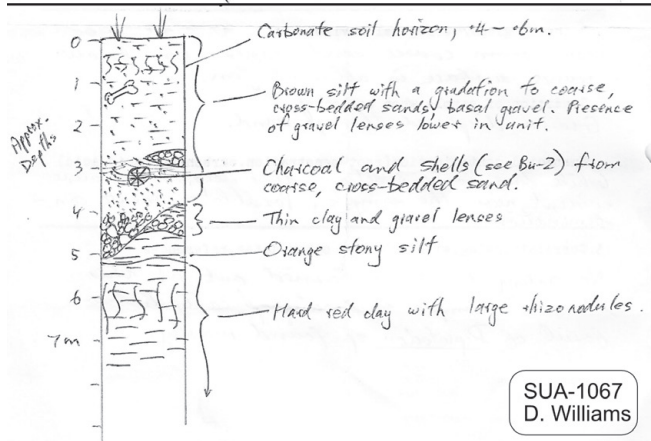 Carbonate soil horizon, ·4 – ·6m.
0
1
2
3
4
5
6
7m
Approx.
Depths
Brown silt with a gradation to coarse,
cross-bedded sands, basal gravel. Presence
of gravel lenses lower in unit.
Charcoal and shells (see Bu-2) from
coarse, cross-bedded sand.
Thin clay and gravel lenses
Orange stony silt
Hard red clay with large rhizonodules.
SUA-1067
D. Williams